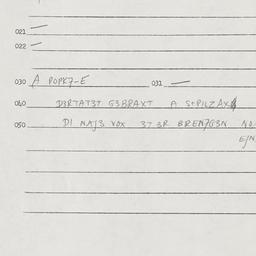 021 —
022 —
030 A POPK7-E 031 —
040 D3RTAT3T G3BRAXT A S+PILZAX
050 DI NAJ3 VOX 3T 3R BREN7G3N NO